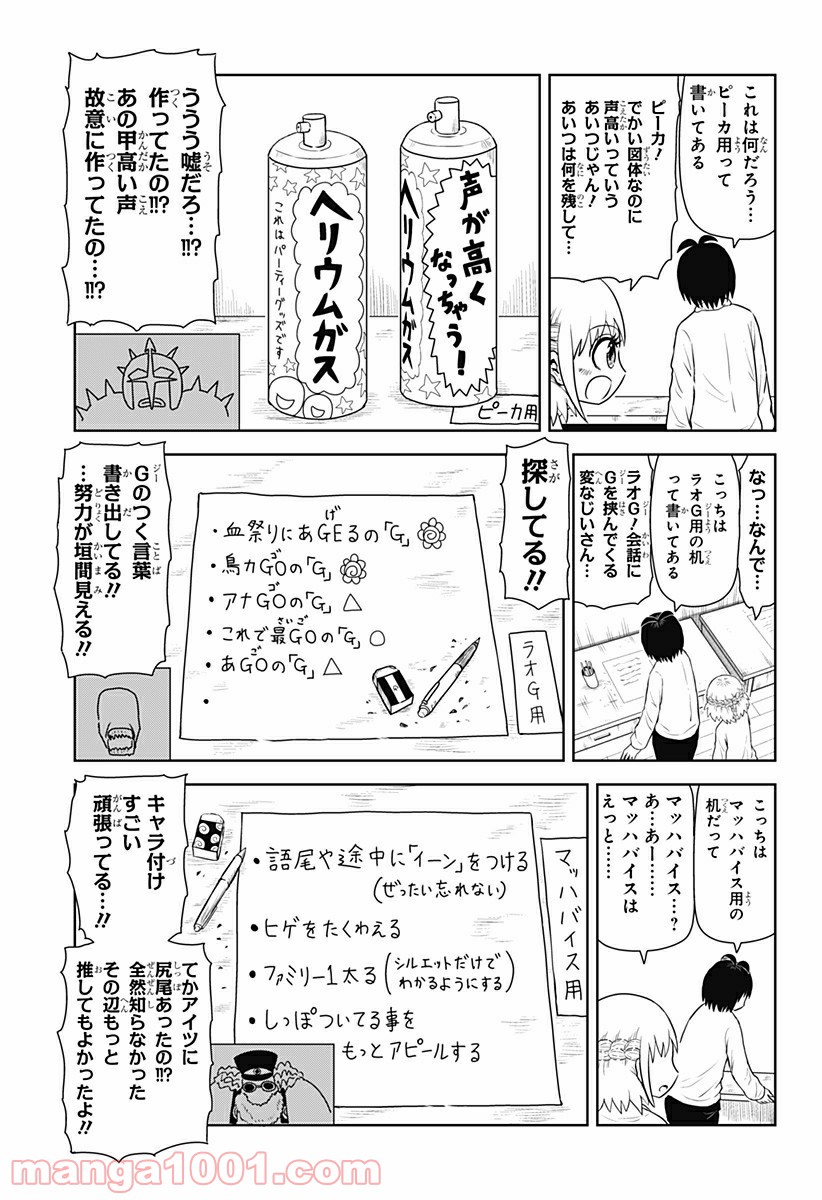 これは何だろう…
ピーカ用って
書いてある
ピーカ!
でかい図体なのに
声高いっていう
あいつじゃん!
あいつは何を残して…
声が高く
なっちゃう!
ヘリウムガス
ヘリウムガス
これはパーティーグッズです
ピーカ用
ううう嘘だろ…!!?
作ってたの!!?
あの甲高い声
故意に作ってたの…!!?
なっ…なんで…
こっちは
ラオG用の机
って書いてある
ラオG!会話に
Gを挟んでくる
変なじいさん…
探してる!!
・血祭りにあGEるの「G」
・鳥カGOの「G」
・アナGOの「G」△
・これで最GOの「G」○
・あGOの「G」△
・
ラオG用
Gのつく言葉
書き出してる!!
…努力が垣間見える!!
こっちは
マッハバイス用の
机だって
マッハバイス…?
あ…あー……
マッハバイスは
えっと……
マッハバイス用
・語尾や途中に「イーン」をつける
(ぜったい忘れない)
・ヒゲをたくわえる
・ファミリー1太る(シルエットだけで
わかるようにする)
・しっぽついてる事を
もっとアピールする
キャラ付け
すごい
頑張ってる…!!
てかアイツに
尻尾あったの!!?
全然知らなかった
その辺もっと
推してもよかったよ!!
manga1001.com